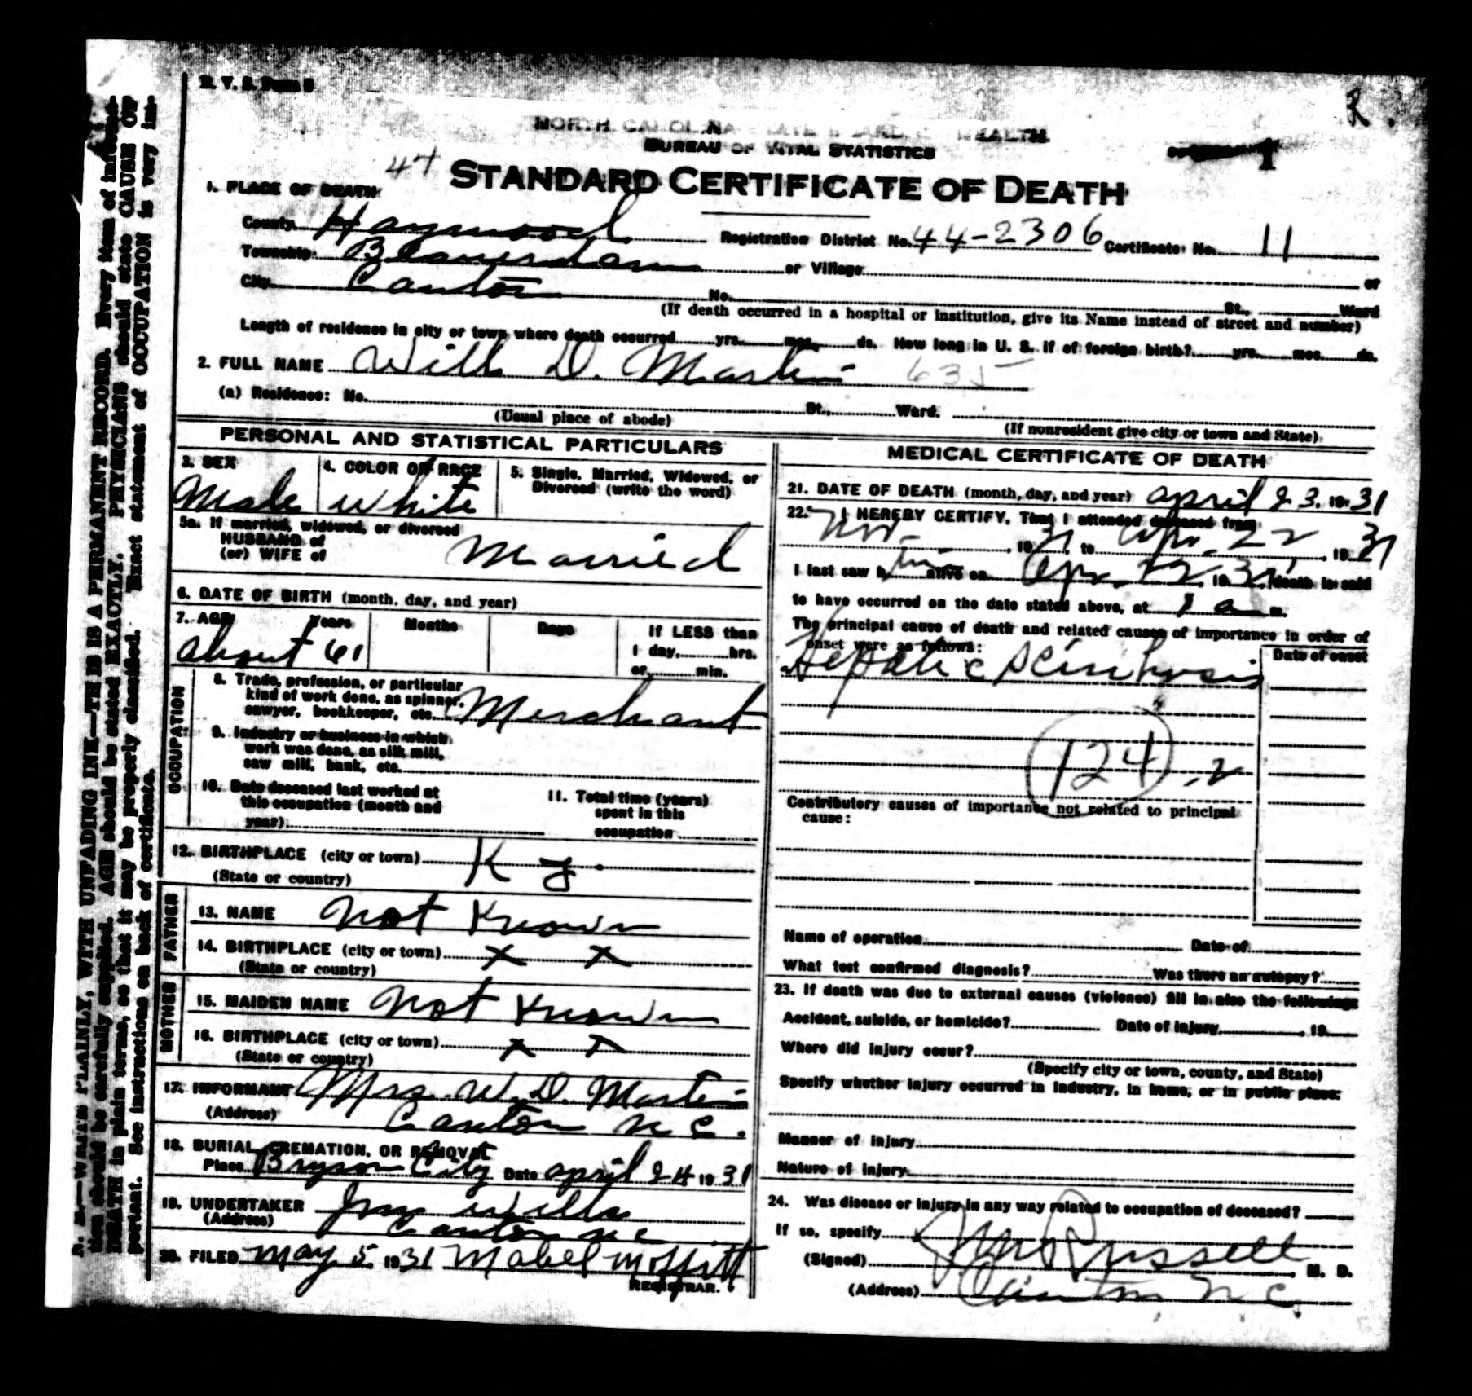 N. B.—WRITE PLAINLY, WITH UNFADING INK—THIS IS A PERMANENT RECORD. Every item of information should be carefully supplied. AGE should be stated EXACTLY. PHYSICIANS should state CAUSE OF DEATH in plain terms, so that it may be properly classified. Exact statement of OCCUPATION is very important. See instructions on back of certificate.
2.
NORTH CAROLINA STATE BOARD OF HEALTH
BUREAU OF VITAL STATISTICS
1
47
STANDARD CERTIFICATE OF DEATH
1. PLACE OF DEATH
County Haywood Registration District No. 44-2306 Certificate No. 11
Township Beaverdam or Village of
City Canton No. St., Ward
(If death occurred in a hospital or institution, give its Name instead of street and number)
Length of residence in city or town where death occurred yrs. mos. ds. How long in U. S. if of foreign birth? yrs. mos. ds.
2. FULL NAME Will D. Martin 635
(a) Residence: No. St., Ward.
(Usual place of abode) (If nonresident give city or town and State)
PERSONAL AND STATISTICAL PARTICULARS
3. SEX 4. COLOR OR RACE 5. Single, Married, Widowed, or
Divorced (write the word)
Male White
5a. If married, widowed, or divorced
HUSBAND of
(or) WIFE of Married
6. DATE OF BIRTH (month, day, and year)
7. AGE Years Months Days If LESS than
1 day, hrs.
about 61 or min.
OCCUPATION
8. Trade, profession, or particular
kind of work done, as spinner,
sawyer, bookkeeper, etc. Merchant
9. Industry or business in which
work was done, as silk mill,
saw mill, bank, etc.
10. Date deceased last worked at
this occupation (month and
year)
11. Total time (years)
spent in this
occupation
12. BIRTHPLACE (city or town) Ky.
(State or country)
FATHER
13. NAME Not Known
14. BIRTHPLACE (city or town) x x
(State or country)
MOTHER
15. MAIDEN NAME Not Known
16. BIRTHPLACE (city or town) x x
(State or country)
17. INFORMANT Mrs. W. D. Martin
(Address) Canton N C.
18. BURIAL, CREMATION, OR REMOVAL
Place Bryson City Date April 24 1931
19. UNDERTAKER Wells
(Address) Canton N C
20. FILED May 5 1931 Mabel Moffitt
REGISTRAR.
MEDICAL CERTIFICATE OF DEATH
21. DATE OF DEATH (month, day, and year) April 23. 19 31
22. I HEREBY CERTIFY, That I attended deceased from
Nov. , 19 , to Apr. 22 , 19 31
I last saw him alive on Apr. 22 19 31, death is said
to have occurred on the date stated above, at a m.
The principal cause of death and related causes of importance in order of
onset were as follows:
Date of onset
Hepatic Scirrhosis
124.2
Contributory causes of importance not related to principal
cause:
Name of operation Date of
What test confirmed diagnosis? Was there an autopsy?
23. If death was due to external causes (violence) fill in also the following:
Accident, suicide, or homicide? Date of injury , 19
Where did injury occur?
(Specify city or town, county, and State)
Specify whether injury occurred in industry, in home, or in public place:
Manner of injury
Nature of injury
24. Was disease or injury in any way related to occupation of deceased?
If so, specify
(Signed) Russell M. D.
(Address) Canton, N. C.